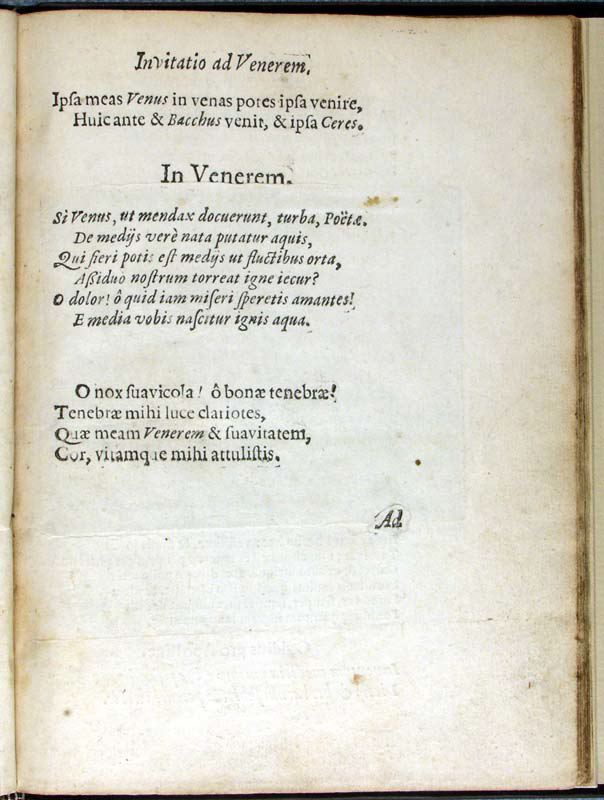 Invitatio ad Venerem.
Ipſa meas Venus in venas potes ipſa venire,
Huic ante & Bacchus venit, & ipſa Ceres.
In Venerem.
Si Venus, ut mendax docuerunt, turba, Poëtæ.
De medijs verè nata putatur aquis,
Qui fieri potis eſt medijs ut fluctibus orta,
Aßiduo noſtrum torreat igne iecur?
O dolor! ô quid iam miſeri ſperetis amantes!
E media vobis naſcitur ignis aqua.
O nox ſuavicola! ô bonæ tenebræ!
Tenebræ mihi luce clariotes,
Quæ meam Venerem & ſuavitatem,
Cor, vitamque mihi attuliſtis.
Ad